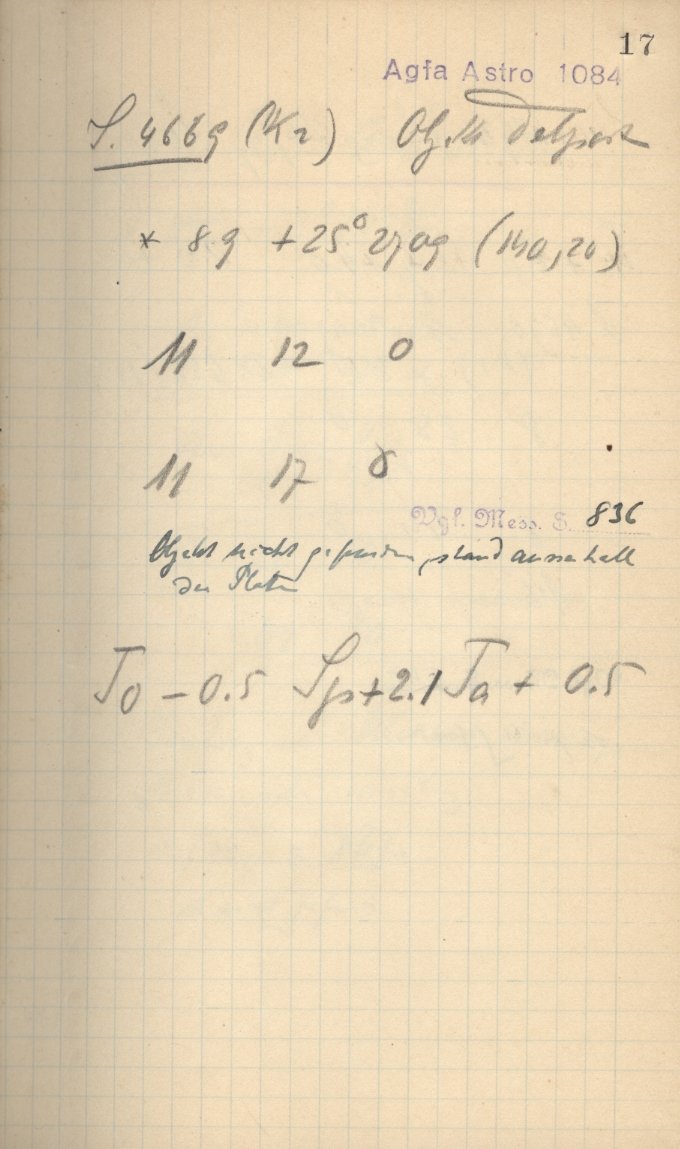 17
Agfa Astro 1084
S. 4669 (Kr) Obj. Delporte
* 8.9 +25° 2709 (140,20)
11 12 0
11 17 8
Vgl. Mess. S. 836
Objekt nicht gefunden, stand ausserhalb
der Platte
To - 0.5 Sp + 2.1 Ta + 0.5